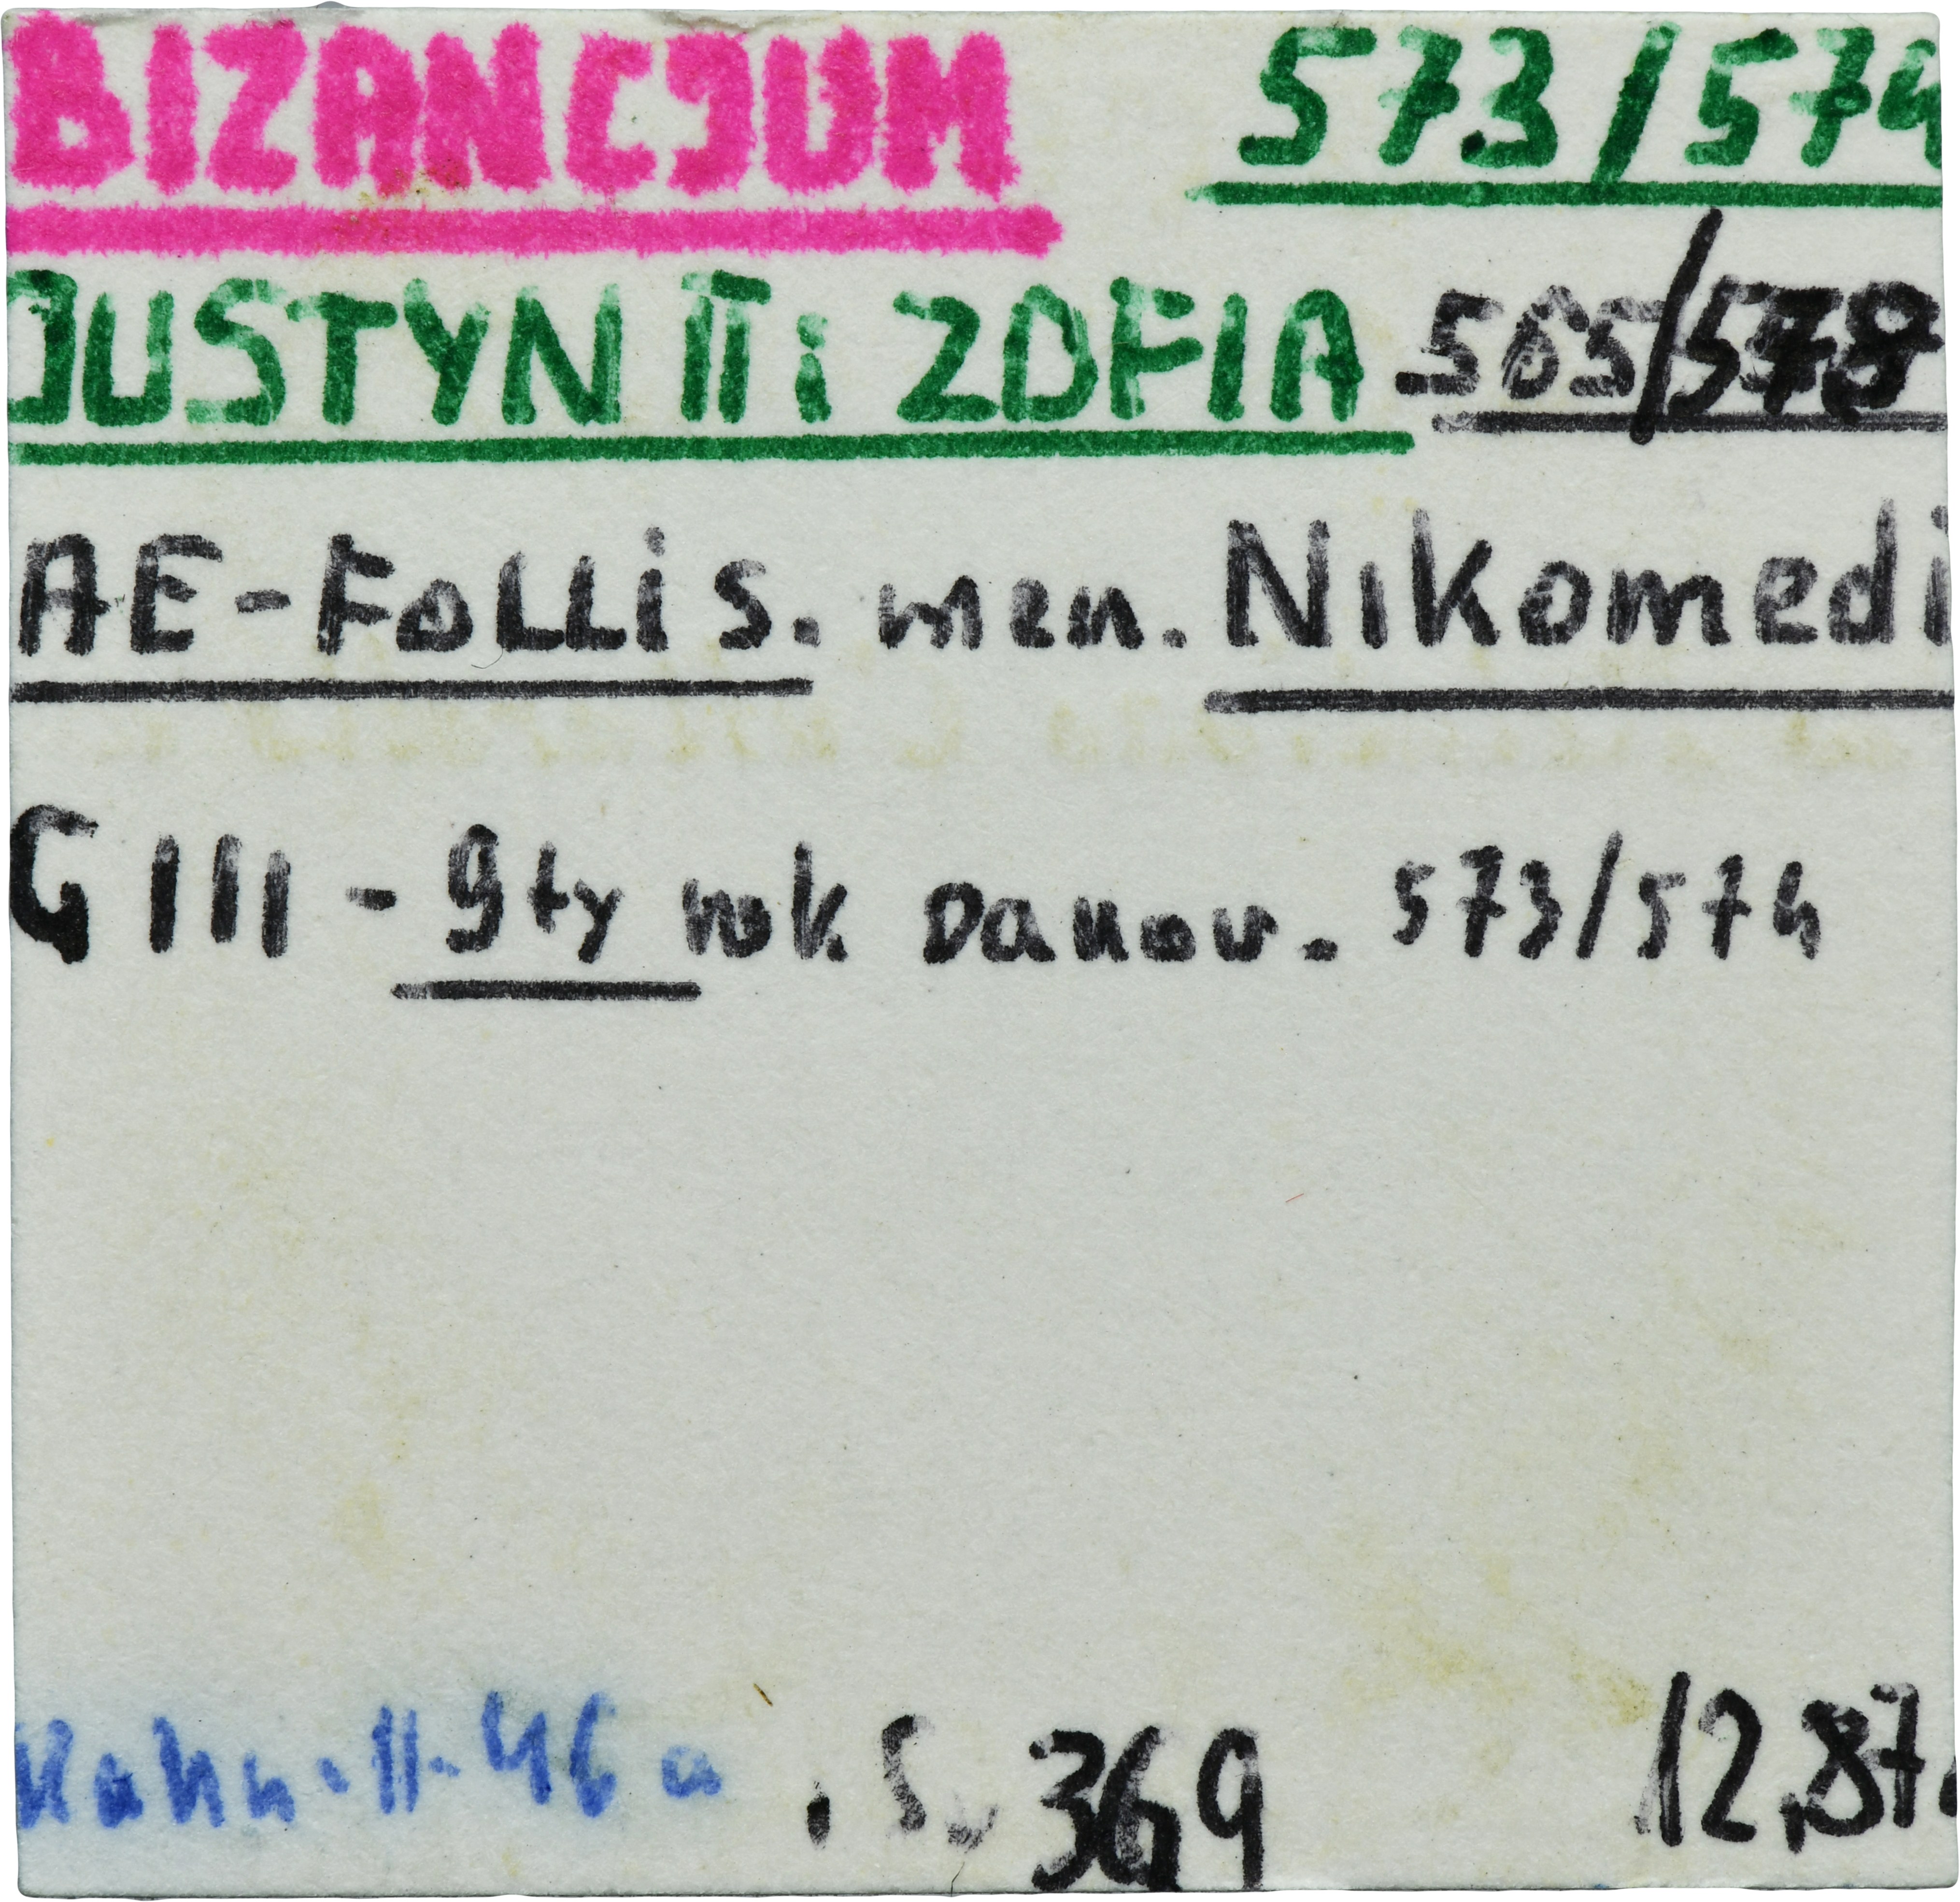 BIZANCJUM 573/574
JUSTYN II i ZOFIA 565/578
AE-FOLLIS. men. Nikomedi
G III - 9ty rok panow. 573/574
Hahn-II-46a . S. 369 12,87